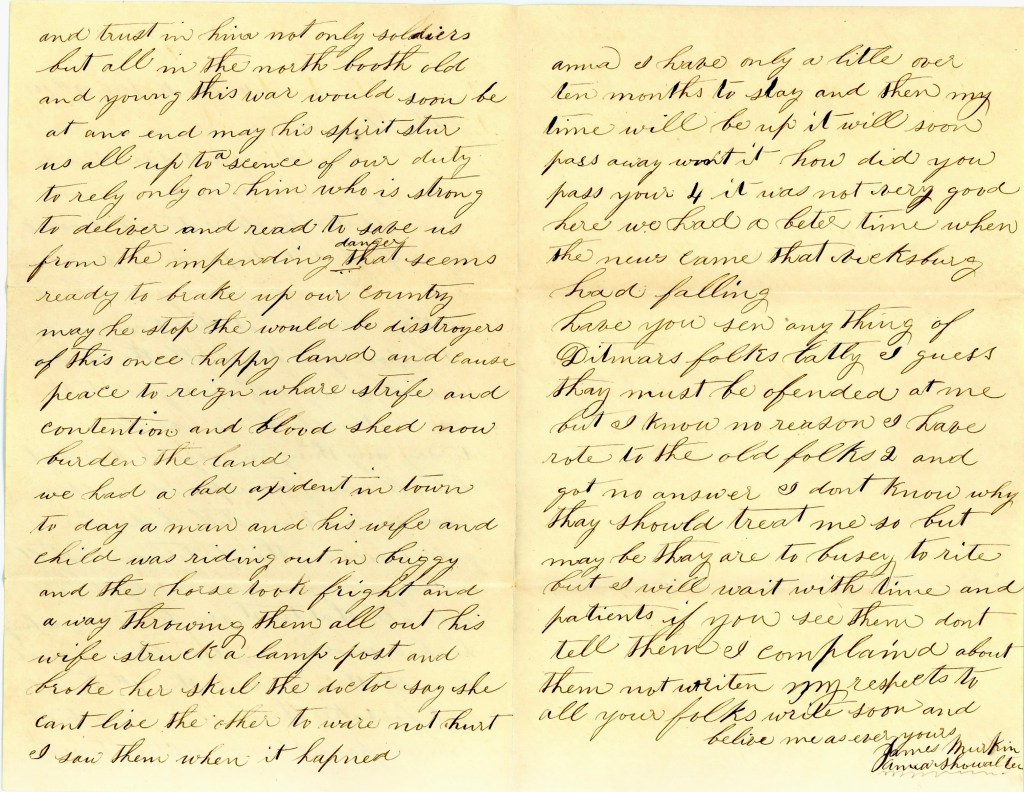 and trust in him not only soldiers
but all in the north booth old
and young this war would soon be
at anc end may his spirit stur
us all up to a scence of our duty
to rely only on him who is strong
to deliver and read to save us
from the impending danger that seems
ready to brake up our country
may he stop the would be disstroyers
of this once happy land and cause
peace to reign whare strife and
contention and blood shed now
burden the land
we had a bad axident in town
to day a man and his wife and
child was riding out in buggy
and the horse took fright and
a way throwing them all out his
wife struck a lamp post and
broke her skul the doctor say she
cant live the other to ware not hurt
I saw them when it hapned
anna I have only a litle over
ten months to stay and then my
time will be up it will soon
pass away wont it how did you
pass your 4 it was not very good
here we had a beter time when
the news came that vicksburg
had falling
have you sen any thing of
Ditmars folks latly I guess
thay must be ofended at me
but I know no reason I have
rote to the old folks 2 and
got no answer I dont know why
thay should treat me so but
may be thay are to busey to rite
but I will wait with time and
patients if you see them dont
tell them I complaind about
them not writen my respects to
all your folks write soon and
belive me as ever yours
James Murkin
Anna Showalter